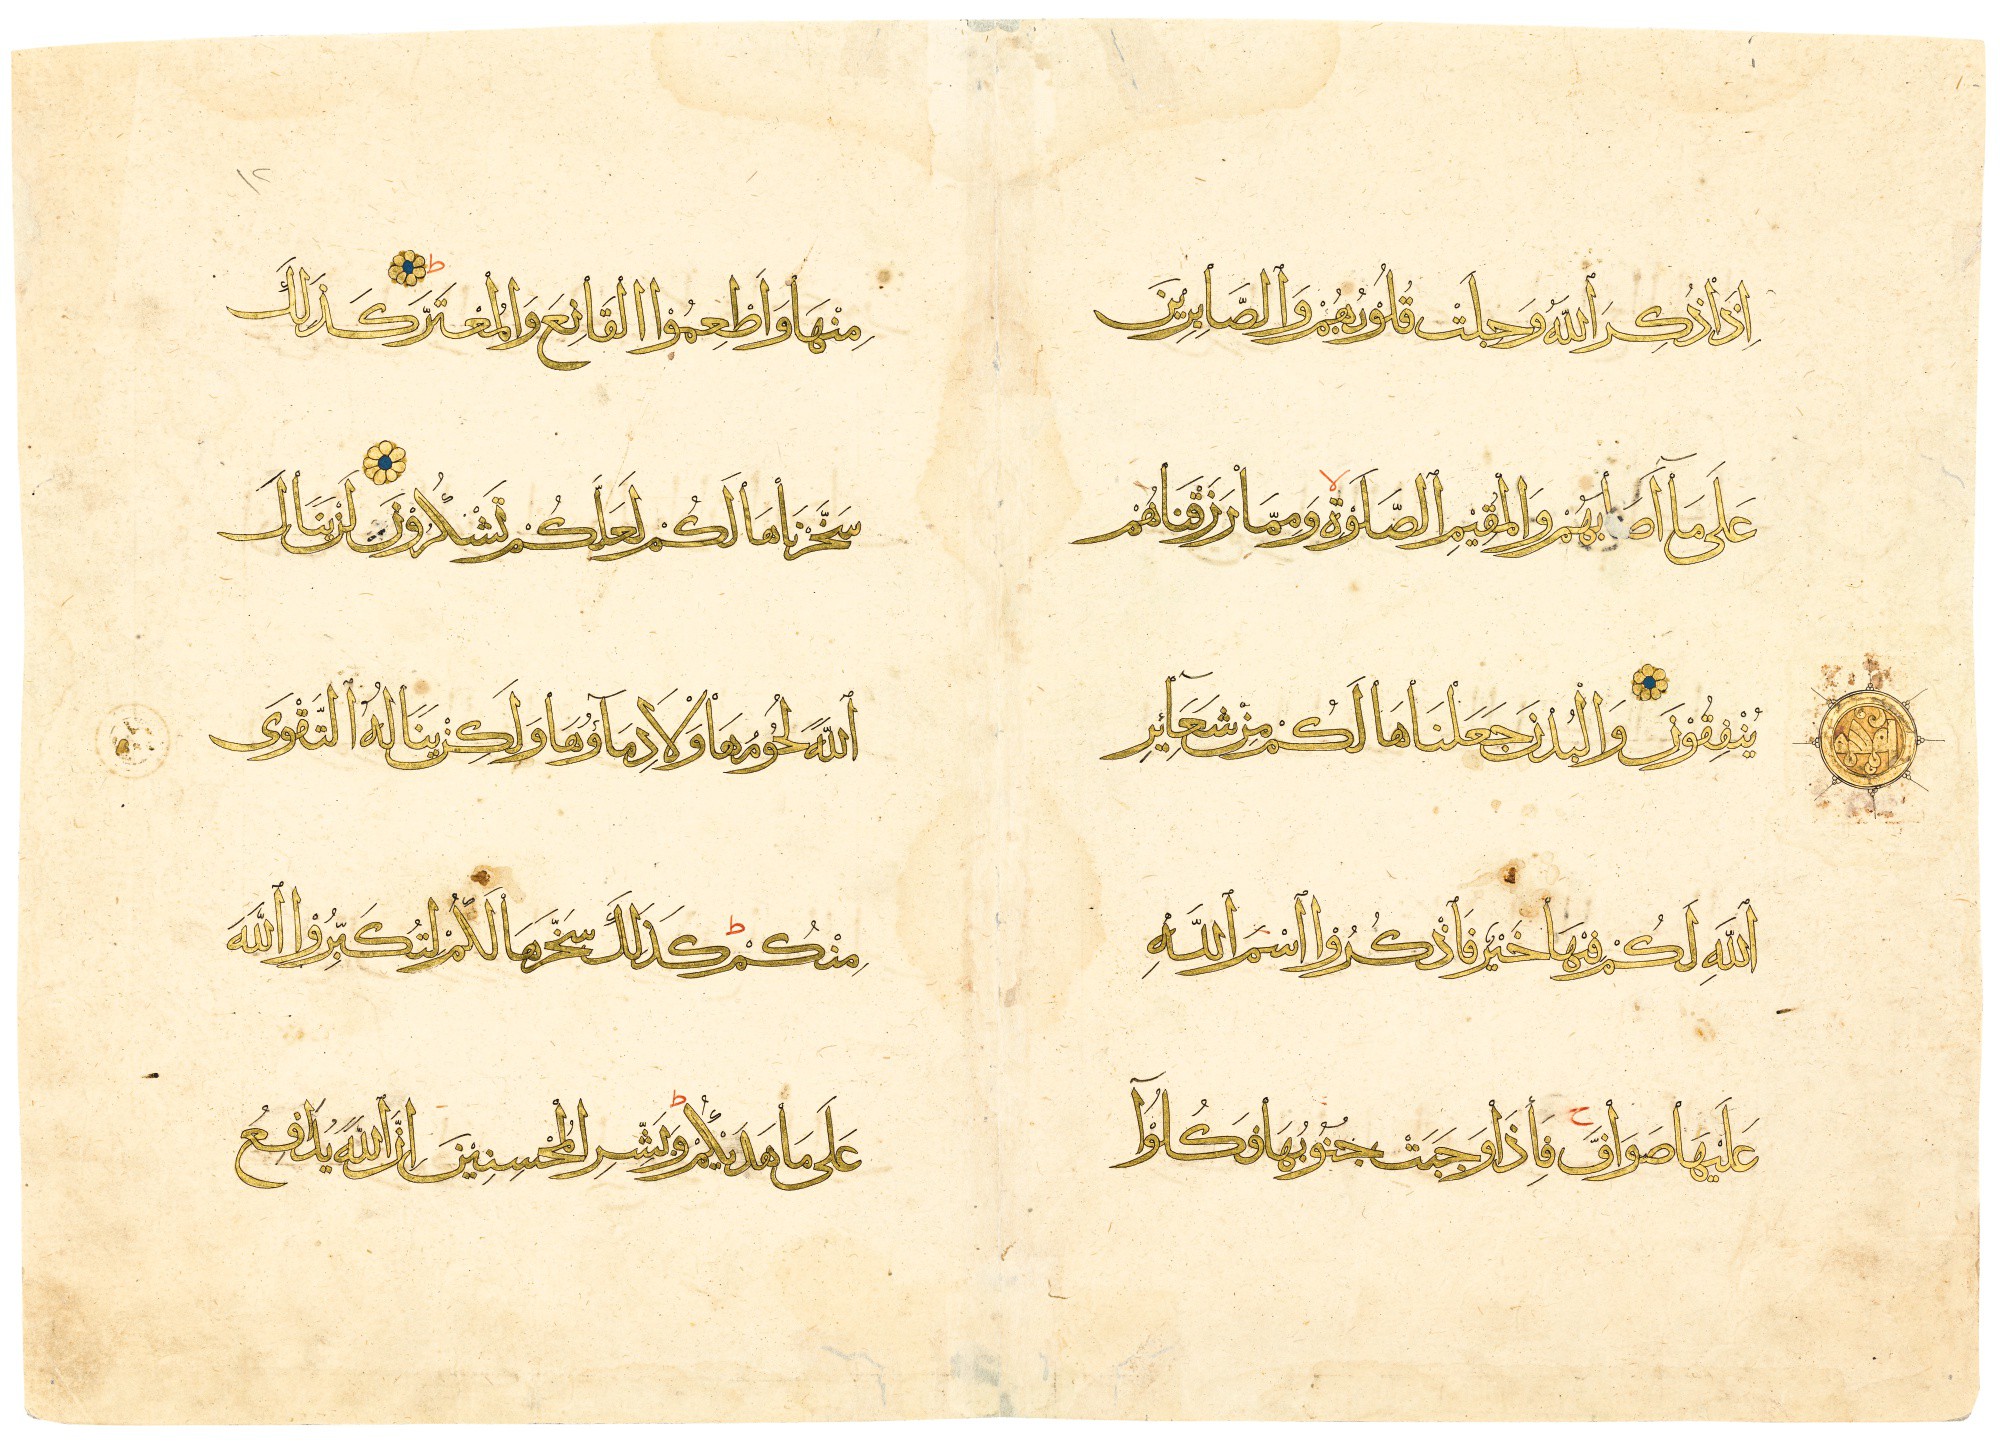 إِذَا ذُكِرَ ٱللَّهُ وَجِلَتْ قُلُوبُهُمْ وَٱلصَّابِرِينَ
عَلَى مَآ أَصَابَهُمْ وَٱلْمُقِيمِ ٱلصَّلَوٰةِ لا وَمِمَّا رَزَقْنَاهُمْ
يُنْفِقُونَ وَٱلْبُدْنَ جَعَلْنَاهَا لَكُمْ مِنْ شَعَآئِرِ
ٱللَّهِ لَكُمْ فِيهَا خَيْرٌ فَٱذْكُرُوا ٱسْمَ ٱللَّهِ
عَلَيْهَا صَوَافَّ ج فَإِذَا وَجَبَتْ جُنُوبُهَا فَكُلُوآ
١٢
مِنْهَا وَأَطْعِمُوا ٱلْقَانِعَ وَٱلْمُعْتَرَّ ط كَذَلِكَ
سَخَّرْنَاهَا لَكُمْ لَعَلَّكُمْ تَشْكُرُونَ لَنْ يَنَالَ
ٱللَّهَ لُحُومُهَا وَلَا دِمَآؤُهَا وَلَكِنْ يَنَالُهُ ٱلتَّقْوَى
مِنْكُمْ ط كَذَلِكَ سَخَّرَهَا لَكُمْ لِتُكَبِّرُوا ٱللَّهَ
عَلَى مَا هَدَىكُمْ ط وَبَشِّرِ ٱلْمُحْسِنِينَ إِنَّ ٱللَّهَ يُدَافِعُ